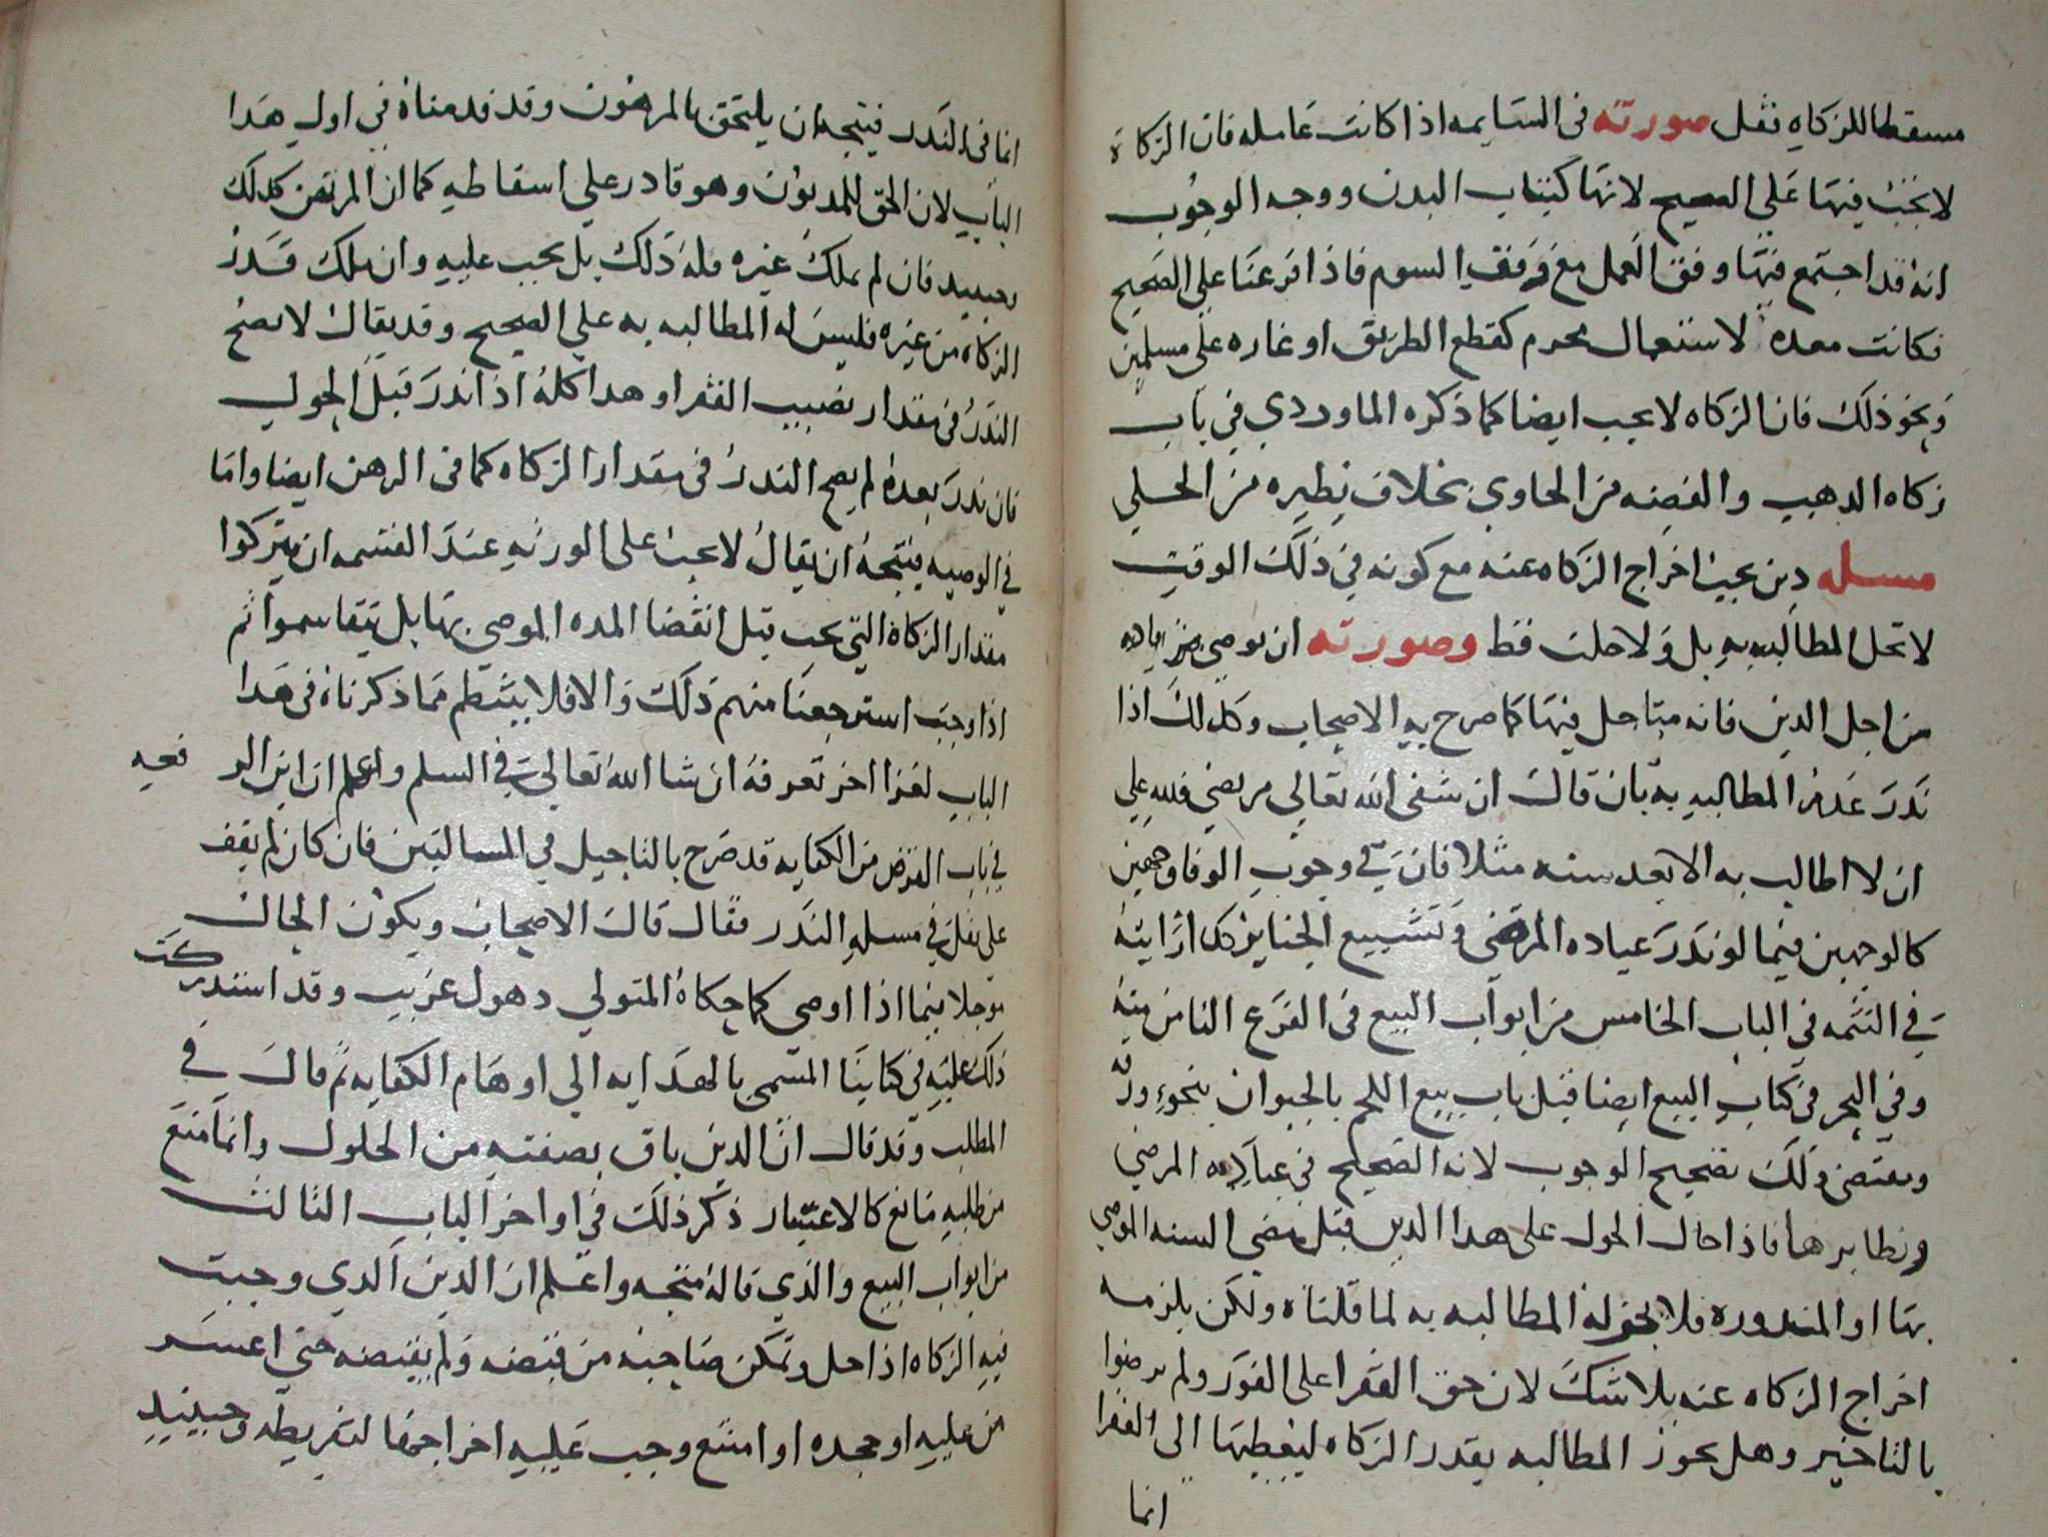 مسقطا للزكاه فقل صورته فى السايمه اذا كانت عامله فان الزكاة
لا تجب فيها على الصحيح لانها كثياب البدن ووجه الوجوب
انه قد اجتمع فيها وفق العمل مع وفق السوم فاذا فرعنا على الصحيح
فكانت معده لاستعمال محرم كقطع الطريق او غاره على مسلمين
ونحو ذلك فان الزكاه لا تجب ايضا كما ذكره الماوردي في باب
زكاه الذهب والفضه من الحاوي بخلاف نظيره من الحلي
مسله دين يجب اخراج الزكاه عنه مع كونه في ذلك الوقت
لا تحل المطالبه به بل ولا حلت قط وصورته ان يوصي
من اجل الدين فانه يتاجل فيها كما صرح به الاصحاب وكذلك اذا
نذر عدم المطالبه به بان قال ان شفى الله تعالى مريضي فلله علي
ان لا اطالب به الا بعد سنه مثلا فان في وجوب الوفا وجهين
كالوجهين فيما لو نذر عياده المرضى وتشييع الجنايز كذا رايته
في التتمه في الباب الخامس من ابواب البيع فى الفرع الثامن منه
وفي البحر في كتاب البيع ايضا قبل باب بيع اللحم بالحيوان بنحو ورقه
ومقتضى ذلك تصحيح الوجوب لانه الصحيح في عيادة المرضى
ونظايرها فاذا حال الحول على هدا الدين قبل مضي السنه الموصي
بها او المنذوره فلا يجوز له المطالبه به لما قلناه ولكن يلزمه
اخراج الزكاه عنه بلا شك لان حق الفقرا على الفور ولم يرضوا
بالتاخير وهل يجوز المطالبه بقدر الزكاه ليعطيها الى الفقرا
انما
انما في النذر فيتجه ان يلتحق بالمرهون وقد قدمناه في اول هدا
الباب لان الحق للمديون وهو قادر على اسقاطه كما ان المرتهن كدلك
وحينيد فان لم يملك غيره فله ذلك بل يجب عليه وان ملك قدر
الزكاه من غيره فليس له المطالبه به على الصحيح وقد يقال لا يصح
النذر في مقدار نصيب الفقرا وهدا كله اذا نذر قبل الحول
فان نذر بعده لم يصح النذر فى مقدار الزكاه كما فى الرهن ايضا واما
في الوصيه فيتجه ان يقال لا يجب على الورثه عند القسمه ان يتركوا
مقدار الزكاة التي تجب قبل انقضا المده الموصي بها بل يتقاسموا ثم
اذا وجبت استرجعنا منهم ذلك والا فلا ينتظم مما ذكرناه فى هدا
الباب لغزا اخر تعرفه ان شا الله تعالى في السلم واعلم ان ابن الرفعه
في باب القرض من الكفايه قد صرح بالتاجيل في المسالتين فان كان لم يقف
على نقل في مسله النذر فقال قال الاصحاب ويكون الحال
موجلا فيما اذا اوصي كما حكاه المتولي دهول غريب وقد استدركت
ذلك عليه في كتابنا المسمى بالهدايه الى اوهام الكفايه ثم قال في
المطلب وقد قال ان الدين باق بصفته من الحلول وانما منع
من طلبه مانع كالاعتبار ذكر ذلك في اواخر الباب الثالث
من ابواب البيع والذي قاله متجه واعلم ان الدين الدي وجبت
فيه الزكاه اذا حل وتمكن صاحبه من قبضه ولم يقبضه حتى اعسر
من عليه او جحده او امتنع وجب عليه اخراجها لتفريطه وحينيد